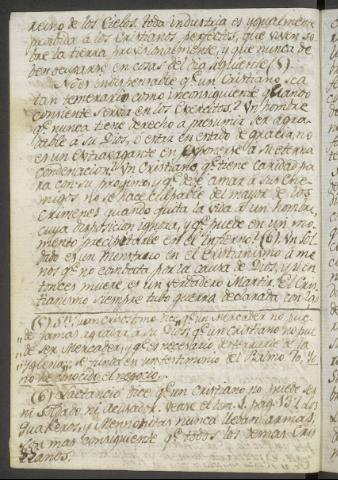 reino de los Cielos, toda industria es ygualmente
proibida a los Cristianos perfectos, que viven so-
bre la tierra provisionalmente, y que nunca de
ben ocuparse en cosas del dia siguiente (5)
No es indispensable q.e un Cristiano sea
tan temerario, como inconsiguiente quando
consiente servir en los Exercitos? Un hombre
q.e nunca tiene derecho a presumir ser agra-
dable a su Dios, o estar en estado de gracia no
es un Extravagante en exponerse a su eterna
condenacion? Un Cristiano q.e tiene caridad pa
ra con su progimo, y q.e deve amar a sus Ene-
migos no se hace culpable del mayor de los
Crimenes quando quita la vida a un hombre,
cuya disposicion ignora, y q.e puede en un mo-
mento precipitarle en el Infierno? (6). Un Sol-
dado es un Monstruo en el Cristianismo a me-
nos q.e no combata por la causa de Dios, y en-
tonces muere, es un verdadero Martir. El Cris-
tianismo siempre tubo guerra declarada con las
(5) S.n Juan Crisostomo dice q.e un Mercader no pue-
de jamas agradar a su Dios, q.e un cristiano no pue
de ser Mercader, y q.e es necesario desterrarle de la
Yglesia; se funda en un testimonio del Psalmo 70. Yo
no he conocido el negocio.
(6) Lactancio dice q.e un Cristiano no puede ser
ni Soldado, ni acusador. Vease el tom. 1. pag. 137. Los
Quakeros, y Mennonitas nunca llevan armas,
son mas consiguientes q.e todos los demas Cris
tianos.